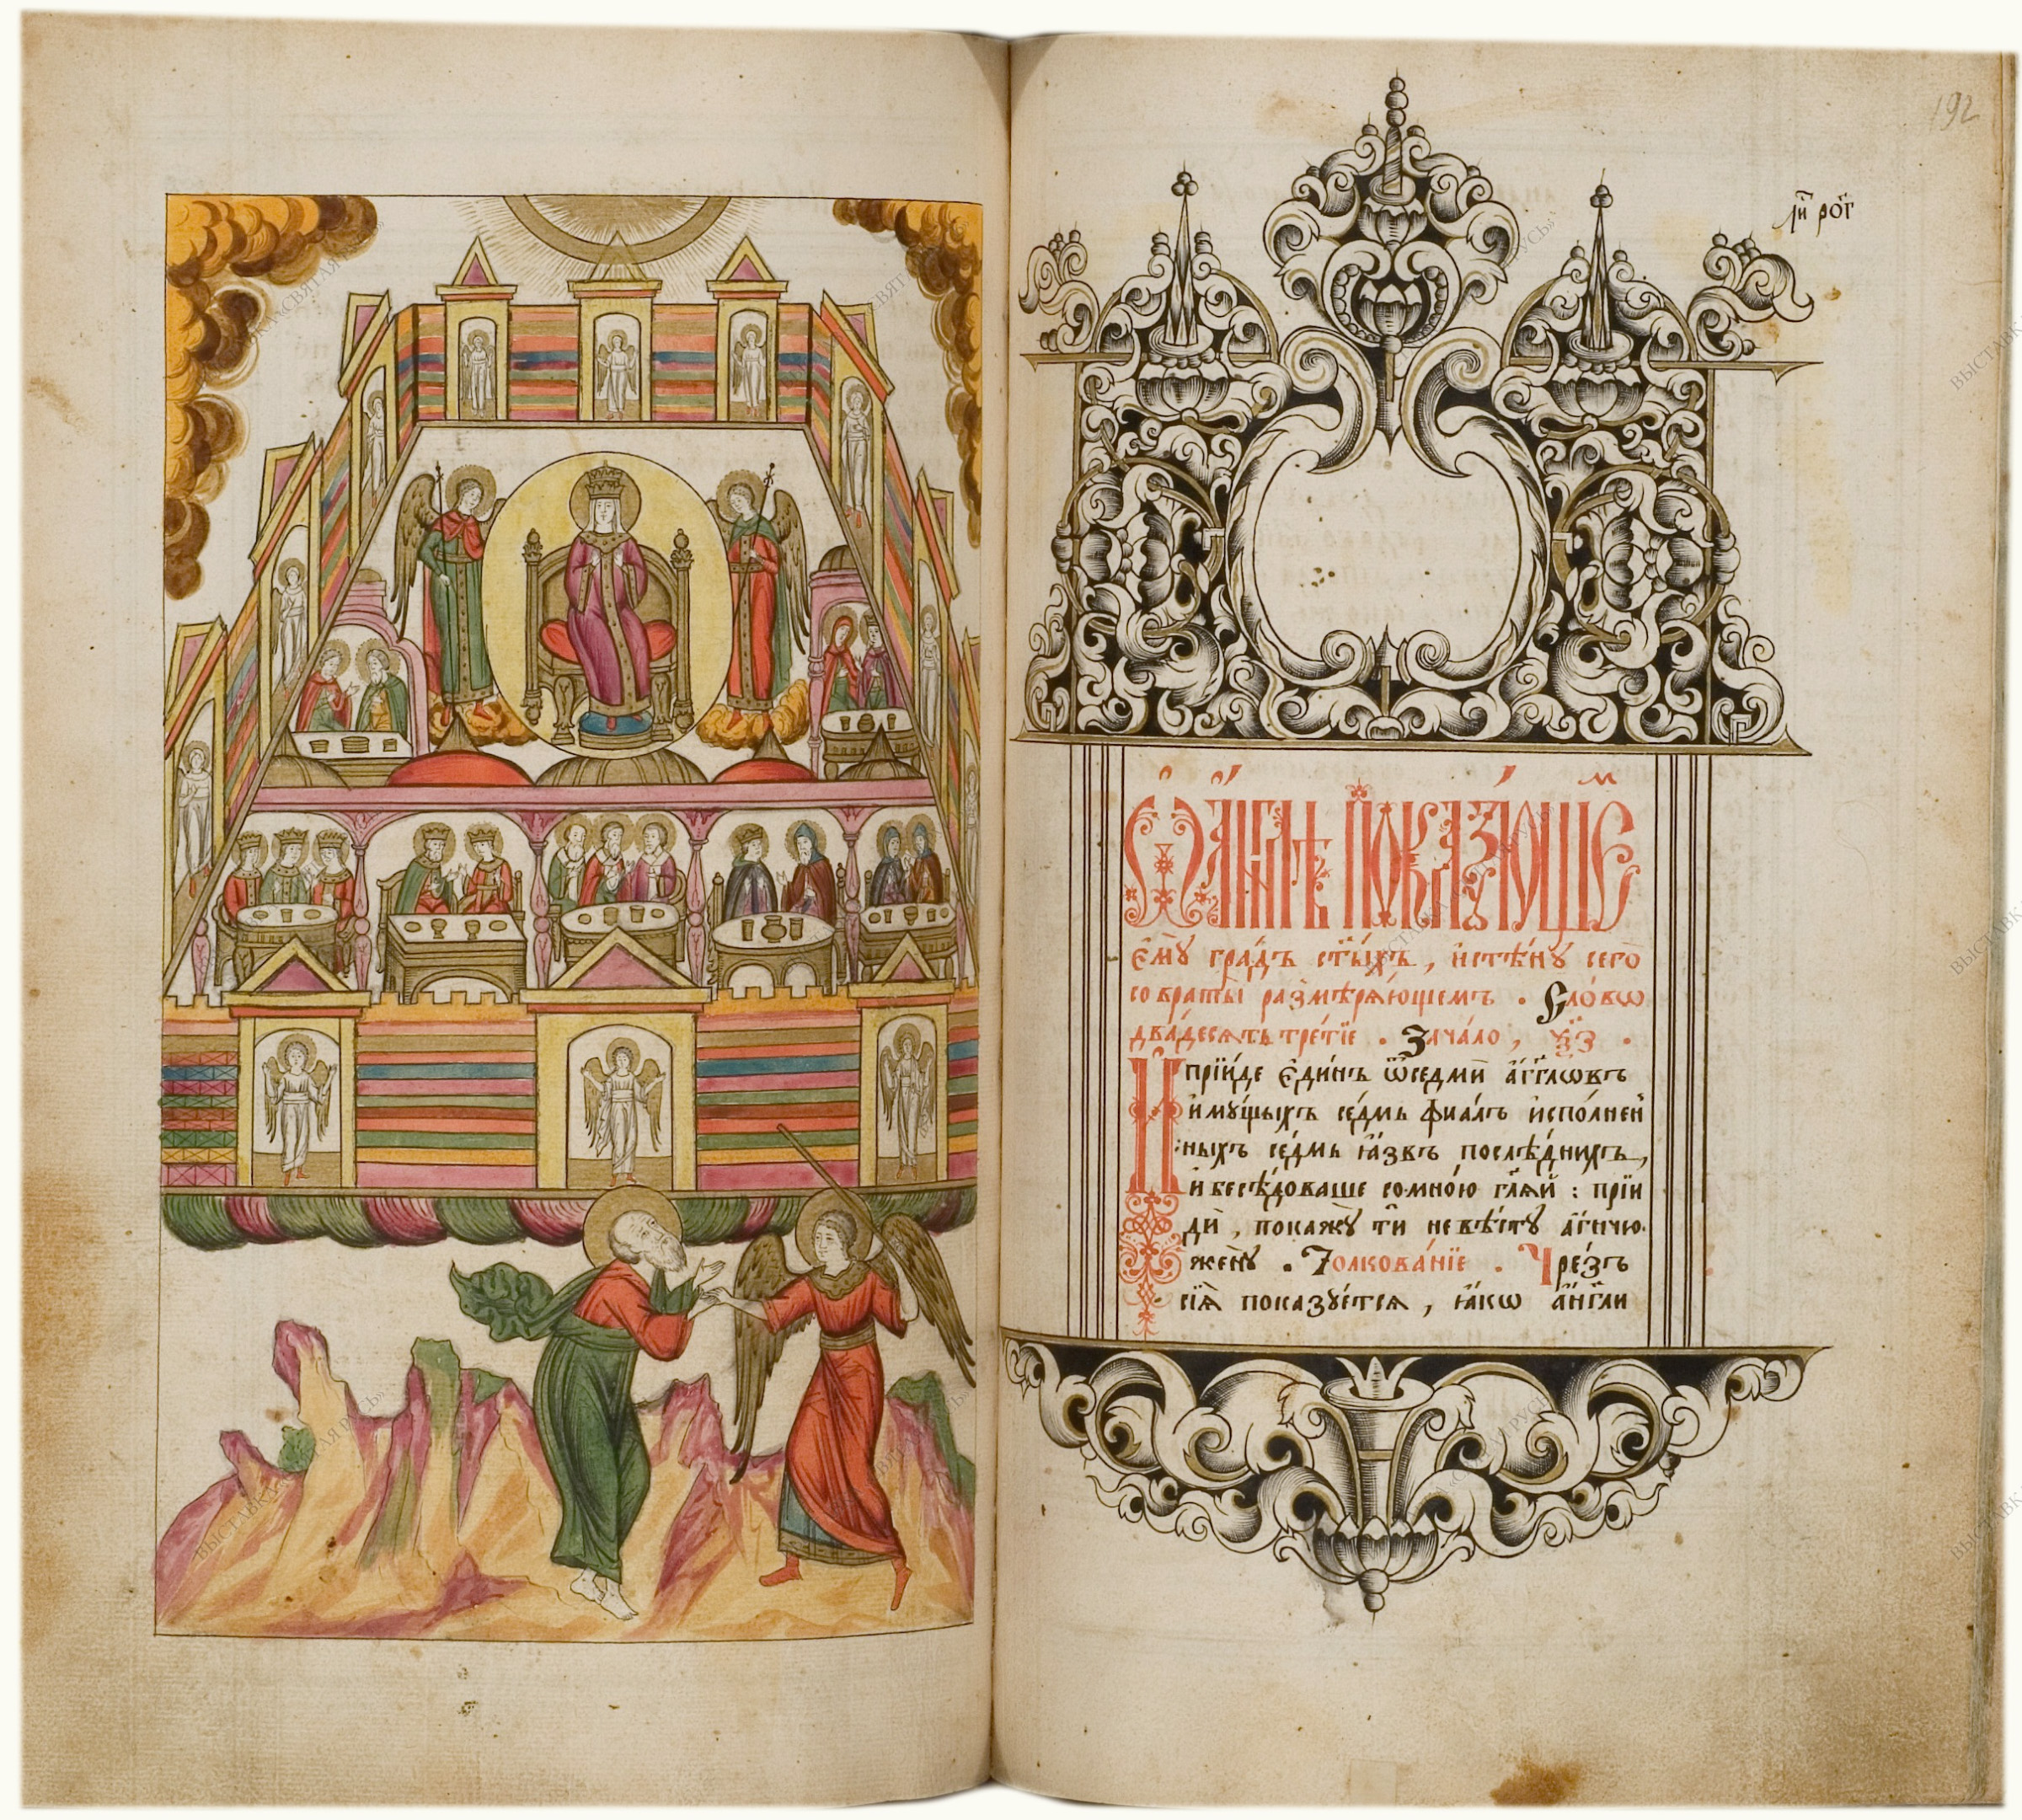 192
Ѡ а҆́нг҃лѣ показꙋ́юще
є҆мꙋ̀ гра́дъ ст҃ы́хъ, и҆стѣ́нꙋ сего̀
со враты̀ размѣрѧ́ющемъ. Сло́вѡ
два́десѧть тре́тїе. Зача́ло, ѯ҃з.
И҆ прїи́де є҆ди́нъ ѿседмѝ а҆́гг҃лѡвъ
и҆мꙋ́щыхъ се́дмь фиа́лъ и҆спо́лнен
ныхъ се́дмь ꙗ҆́звъ послѣ́днихъ,
и҆ бесѣ́доваше сомно́ю гл҃ѧй: прїи
дѝ, покажꙋ̀ тѝ невѣ́стꙋ а҆́гнчю
женꙋ̀. Толкова́нїе. Чре́зъ
сїѧ̀ показꙋ́етсѧ, ꙗ҆́кѡ а҆́нг҃ли
ВЫСТАВКА «СВЯТАЯ РУСЬ»